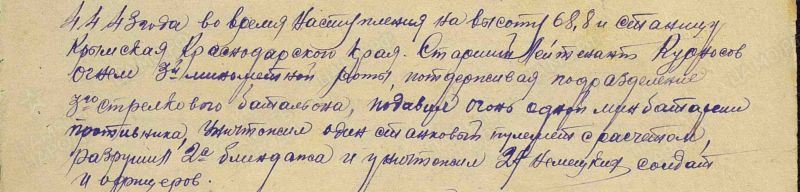 4 4 43 года во время наступления на высоту 68,8 и станицу
Крымская Краснодарского края. Старший Лейтенант Курносов
огнем 3й минометной роты, потдерживая подразделение
3го стрелкового батальона, подавил огонь одной минбатареи
противника, уничтожил один станковый пулемет с расчетом,
разрушил 2а блиндажа и уничтожил немецких солдат
и офицеров.